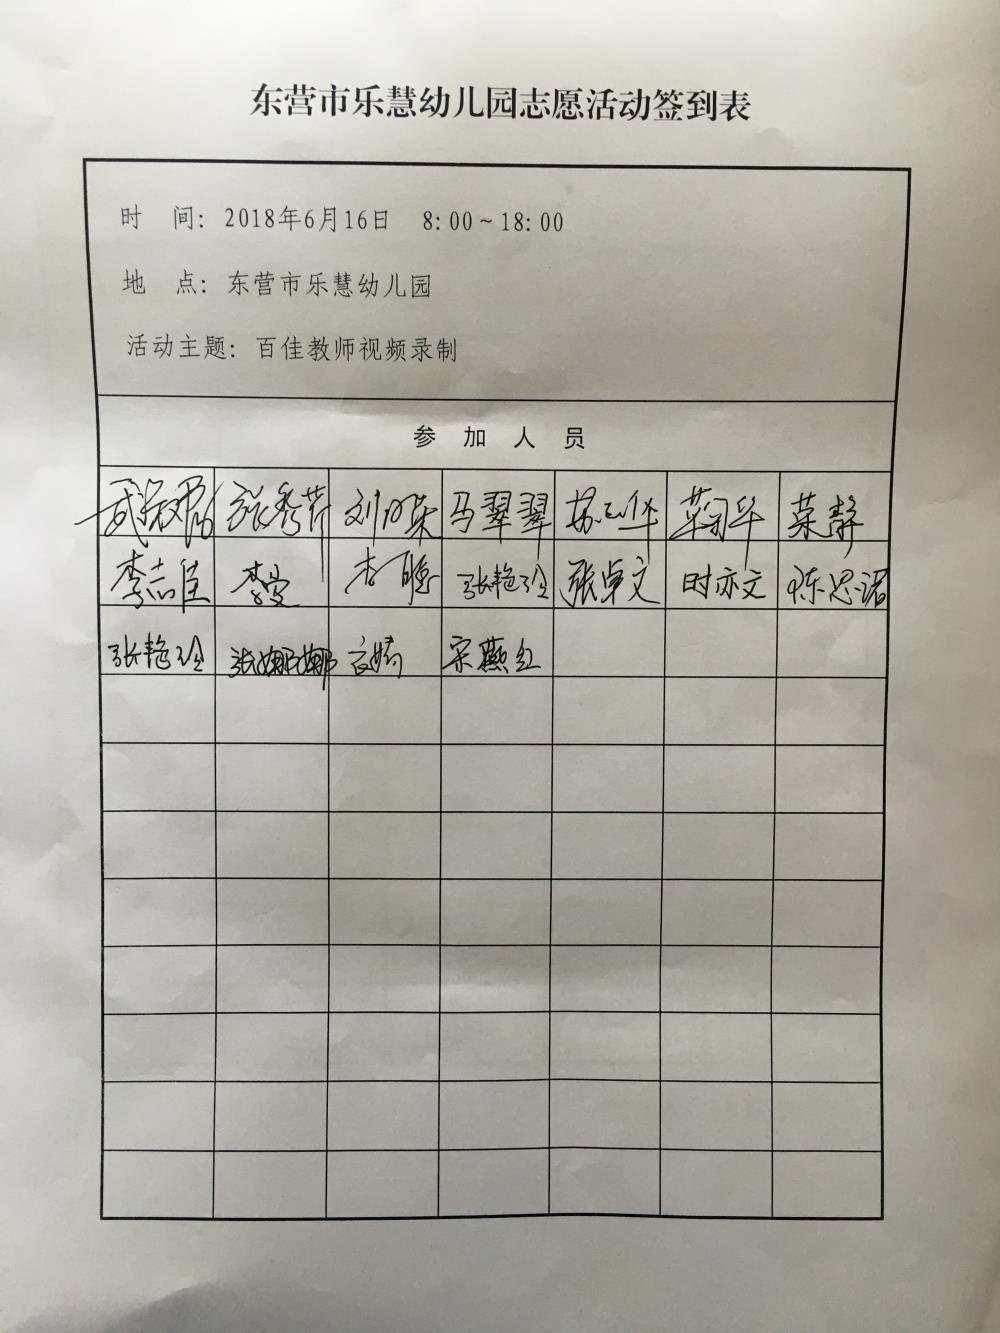 东营市乐慧幼儿园志愿活动签到表
时 间: 2018年6月16日 8:00~18:00
地 点: 东营市乐慧幼儿园
活动主题: 百佳教师视频录制
参 加 人 员
张秀芹 马翠翠 荣静
李志佳 李曼 张艳玲 张卓文 时亦文 陈思诺
张艳玲 张娜娜 宋燕红